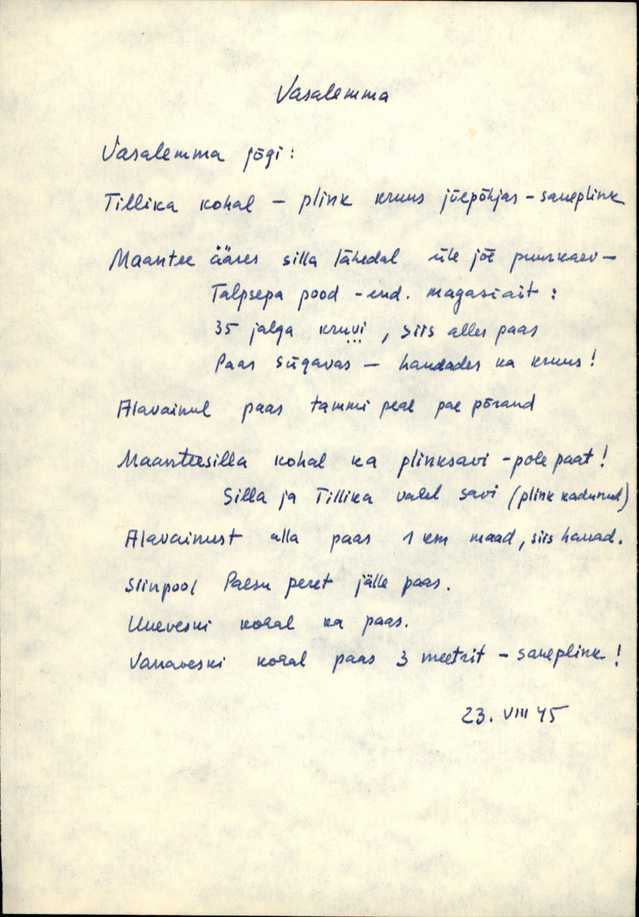 Vasalemma
Vasalemma jõgi:
Tillika kohal – plink kruus jõepõhjas – saueplink
Maantee ääres silla lähedal üle jõe puurkaev –
Talpsepa pood – end. magasiait:
35 jalga kruvi, siis alles paas
Paas sügavas – haudades ka kruus!
Alavainul paas tammi peal pae põrand
Maanteesilla kohal ka plinksavi – pole paat!
Silla ja Tillika vahel savi (plink kadunud)
Alavainust alla paas 1 km maad, siis hauad.
Siinpool Paesu peret jälle paas.
Uueveski kohal ka paas.
Vanaveski kohal paas 3 meetrit – saueplink!
23. VIII 45